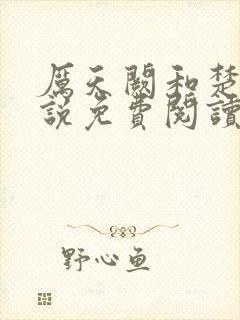 厲天闕和楚
說免費閱讀
野心鱼